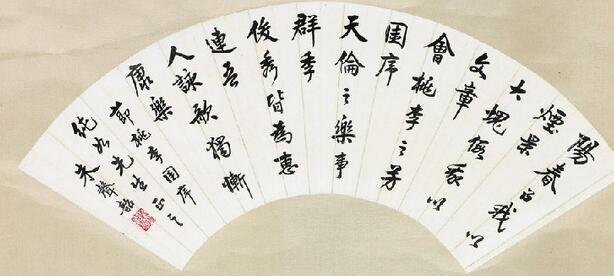 陽春召我以
煙景
大塊假我以
文章
會桃李之芳
園序
天倫之樂事
群季
俊秀皆為惠
連吾
人詠歌獨慚
康樂
節桃李園序
先生正之
朱聲韶